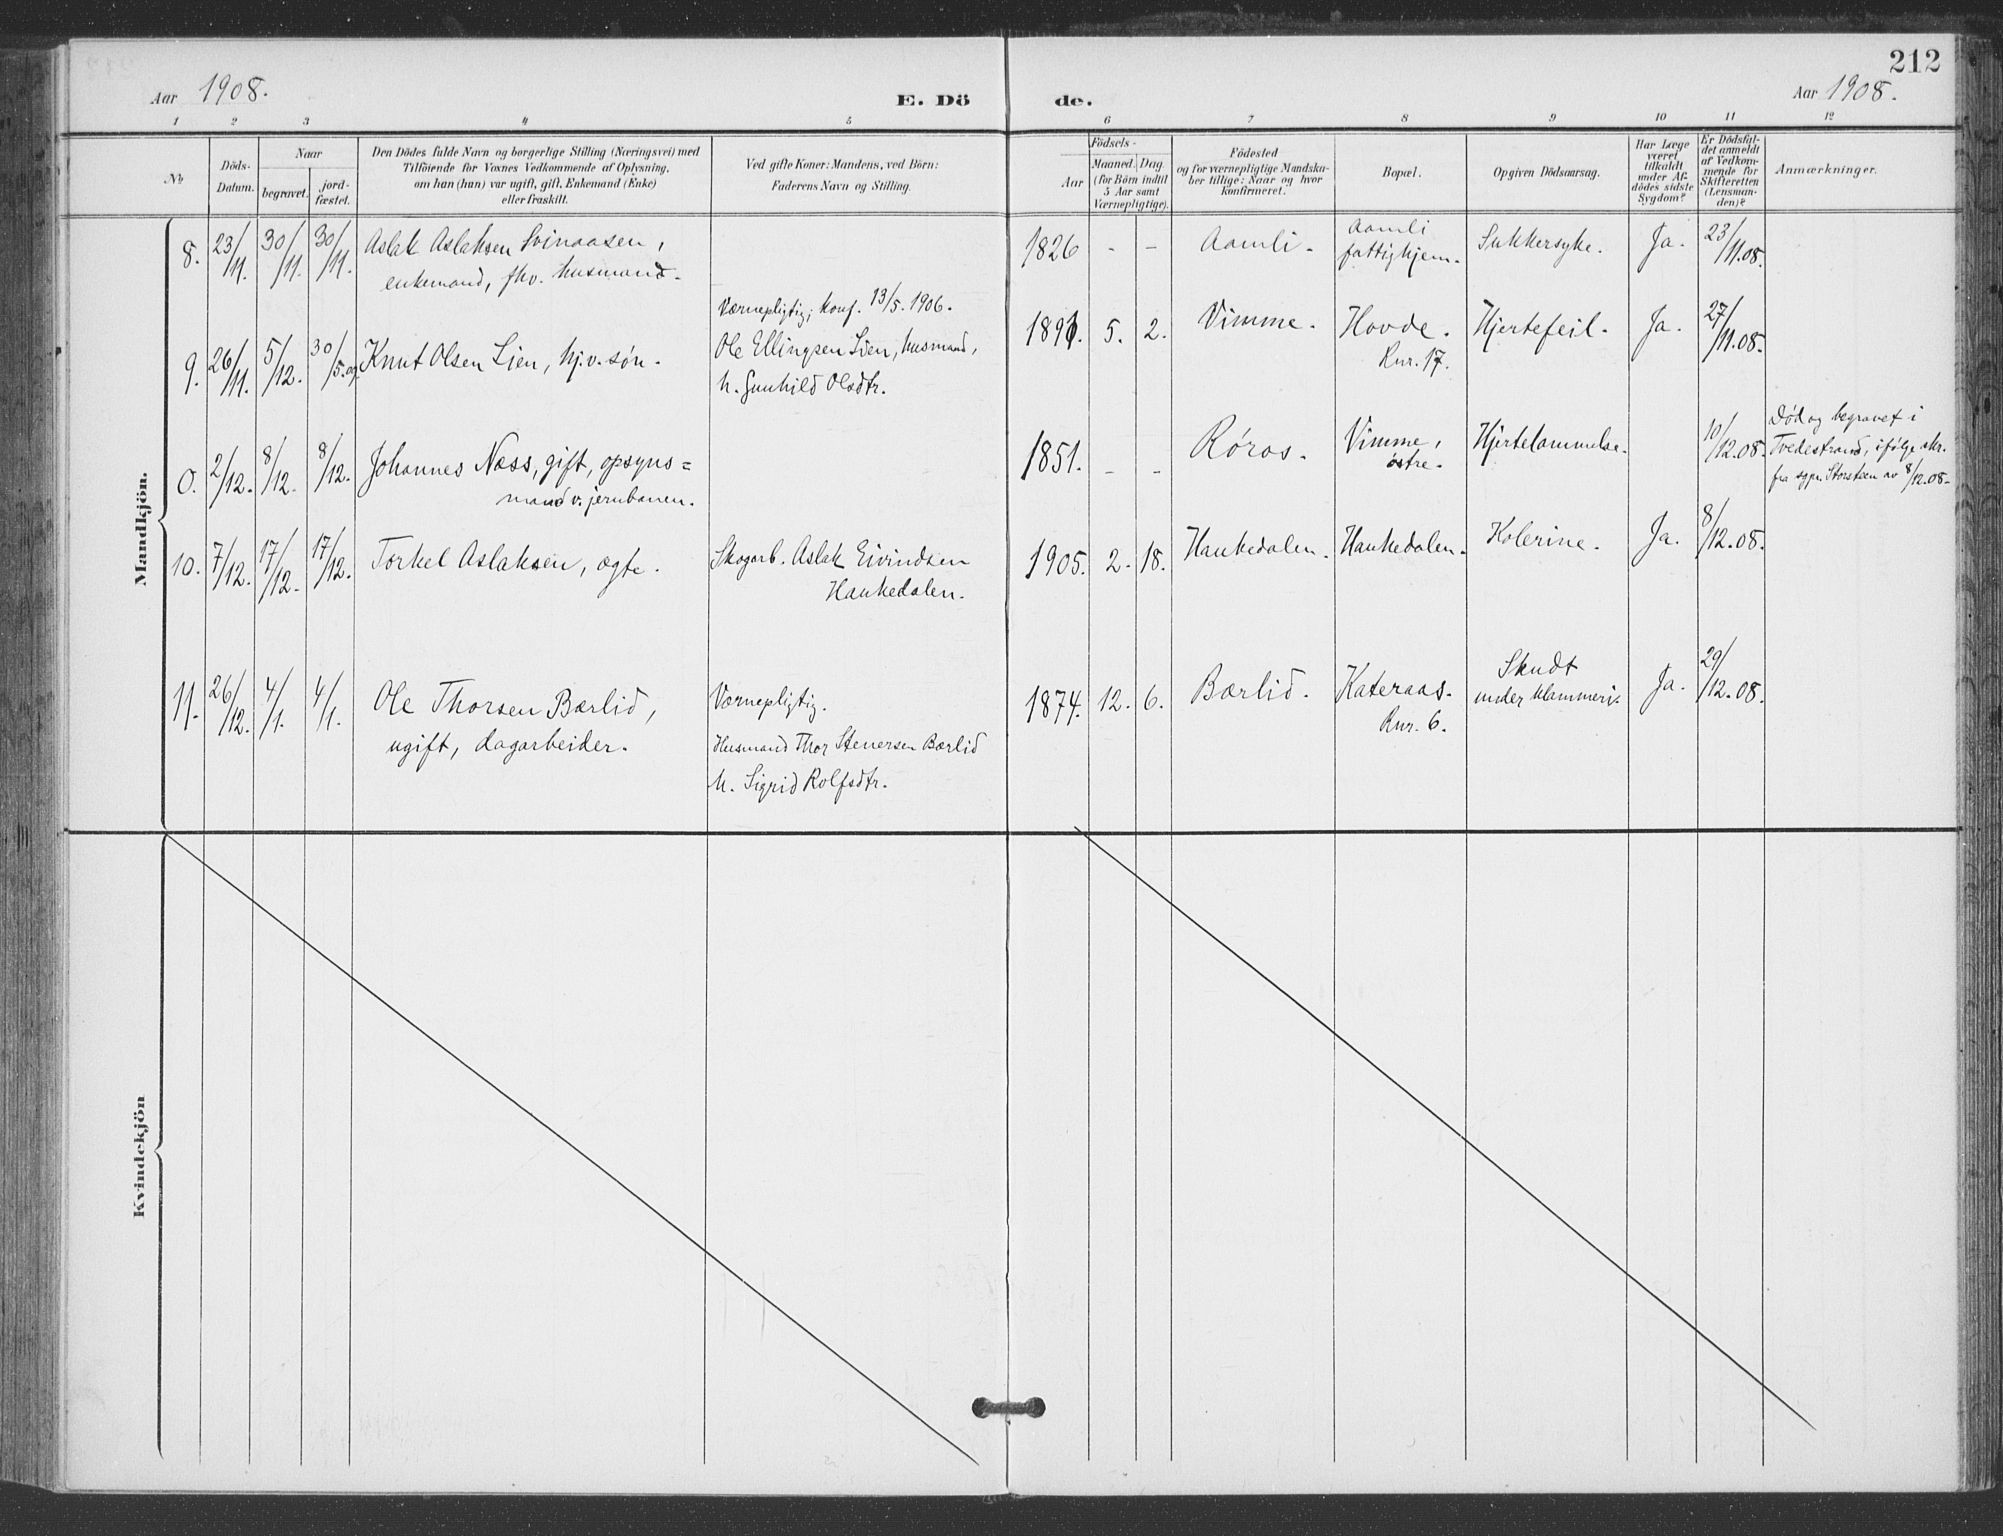 212
Aar 1908.
E. Dö
de.
Aar 1908.
1 2 3 4 5 6 7 8 9 10 11 12
No
Döds-
Datum.
Naar
begravet.
jord-
fæstet.
Den Dödes fulde Navn og borgerlige Stilling (Næringsvei) med
Tilföiende for Voxnes Vedkommende af Oplysning,
om han (hun) var ugift, gift, Enkemand (Enke)
eller fraskilt.
Ved gifte Koner: Mandens, ved Börn:
Faderens Navn og Stilling.
Födsels-
Aar
Maaned. Dag.
(for Börn indtil
5 Aar samt
Værnepligtige).
Födested
og for værnepligtige Mandska-
ber tillige: Naar og hvor
konfirmeret.
Bopæl.
Opgiven Dödsaarsag.
Har Læge
været
tilkaldt
under Af-
dödes sidste
Sygdom?
Er Dödsfal-
det anmeldt
af Vedkom-
mende for
Skifteretten
(Lensman-
den)?
Anmærkninger.
Mandkjön.
8. 23/11. 30/11. 30/11. Aslak Aslaksen Svinaasen,
enkemand, fhv. husmand.
1826 - - Aamli. Aamli
fattighjem. Sukkersyke. Ja. 23/11.08.
9. 26/11. 5/12. 30/5.09. Knut Olsen Lien, hj.v. søn.
Værnepligtig; konf. 13/5. 1906.
Ole Ellingsen Lien, husmand,
h. Gunhild Olsdtr.
1891. 5. 2. Vimme. Hovde.
Rnr. 17. Hjertefeil. Ja. 27/11.08.
0. 2/12. 8/12. 8/12. Johannes Næss, gift, opsyns=
mand v. jernbanen.
1851. - - Röros. Vimme,
østre. Hjertelammelse. 10/12.08.
Död og begravet i
Tvedestrand, ifölge skr.
fra sgpr. Storsteen av 8/12.08.
10. 7/12. 17/12. 17/12. Torkel Aslaksen, ægte.
Skogarb. Aslak Eivindsen
Haukedalen.
1905. 2. 18. Haukedalen. Haukedalen. Kolerine. Ja. 8/12.08.
11. 26/12. 4/1. 4/1. Ole Thorsen Bærlid,
ugift, dagarbeider.
Værnepligtig.
Husmand Thor Stenersen Bærlid
h. Sigrid Rolfsdtr.
1874. 12. 6. Bærlid. Kateraas.
Rnr. 6. Skudt
under klammeri. Ja. 29/12.08.
Kvindekjön